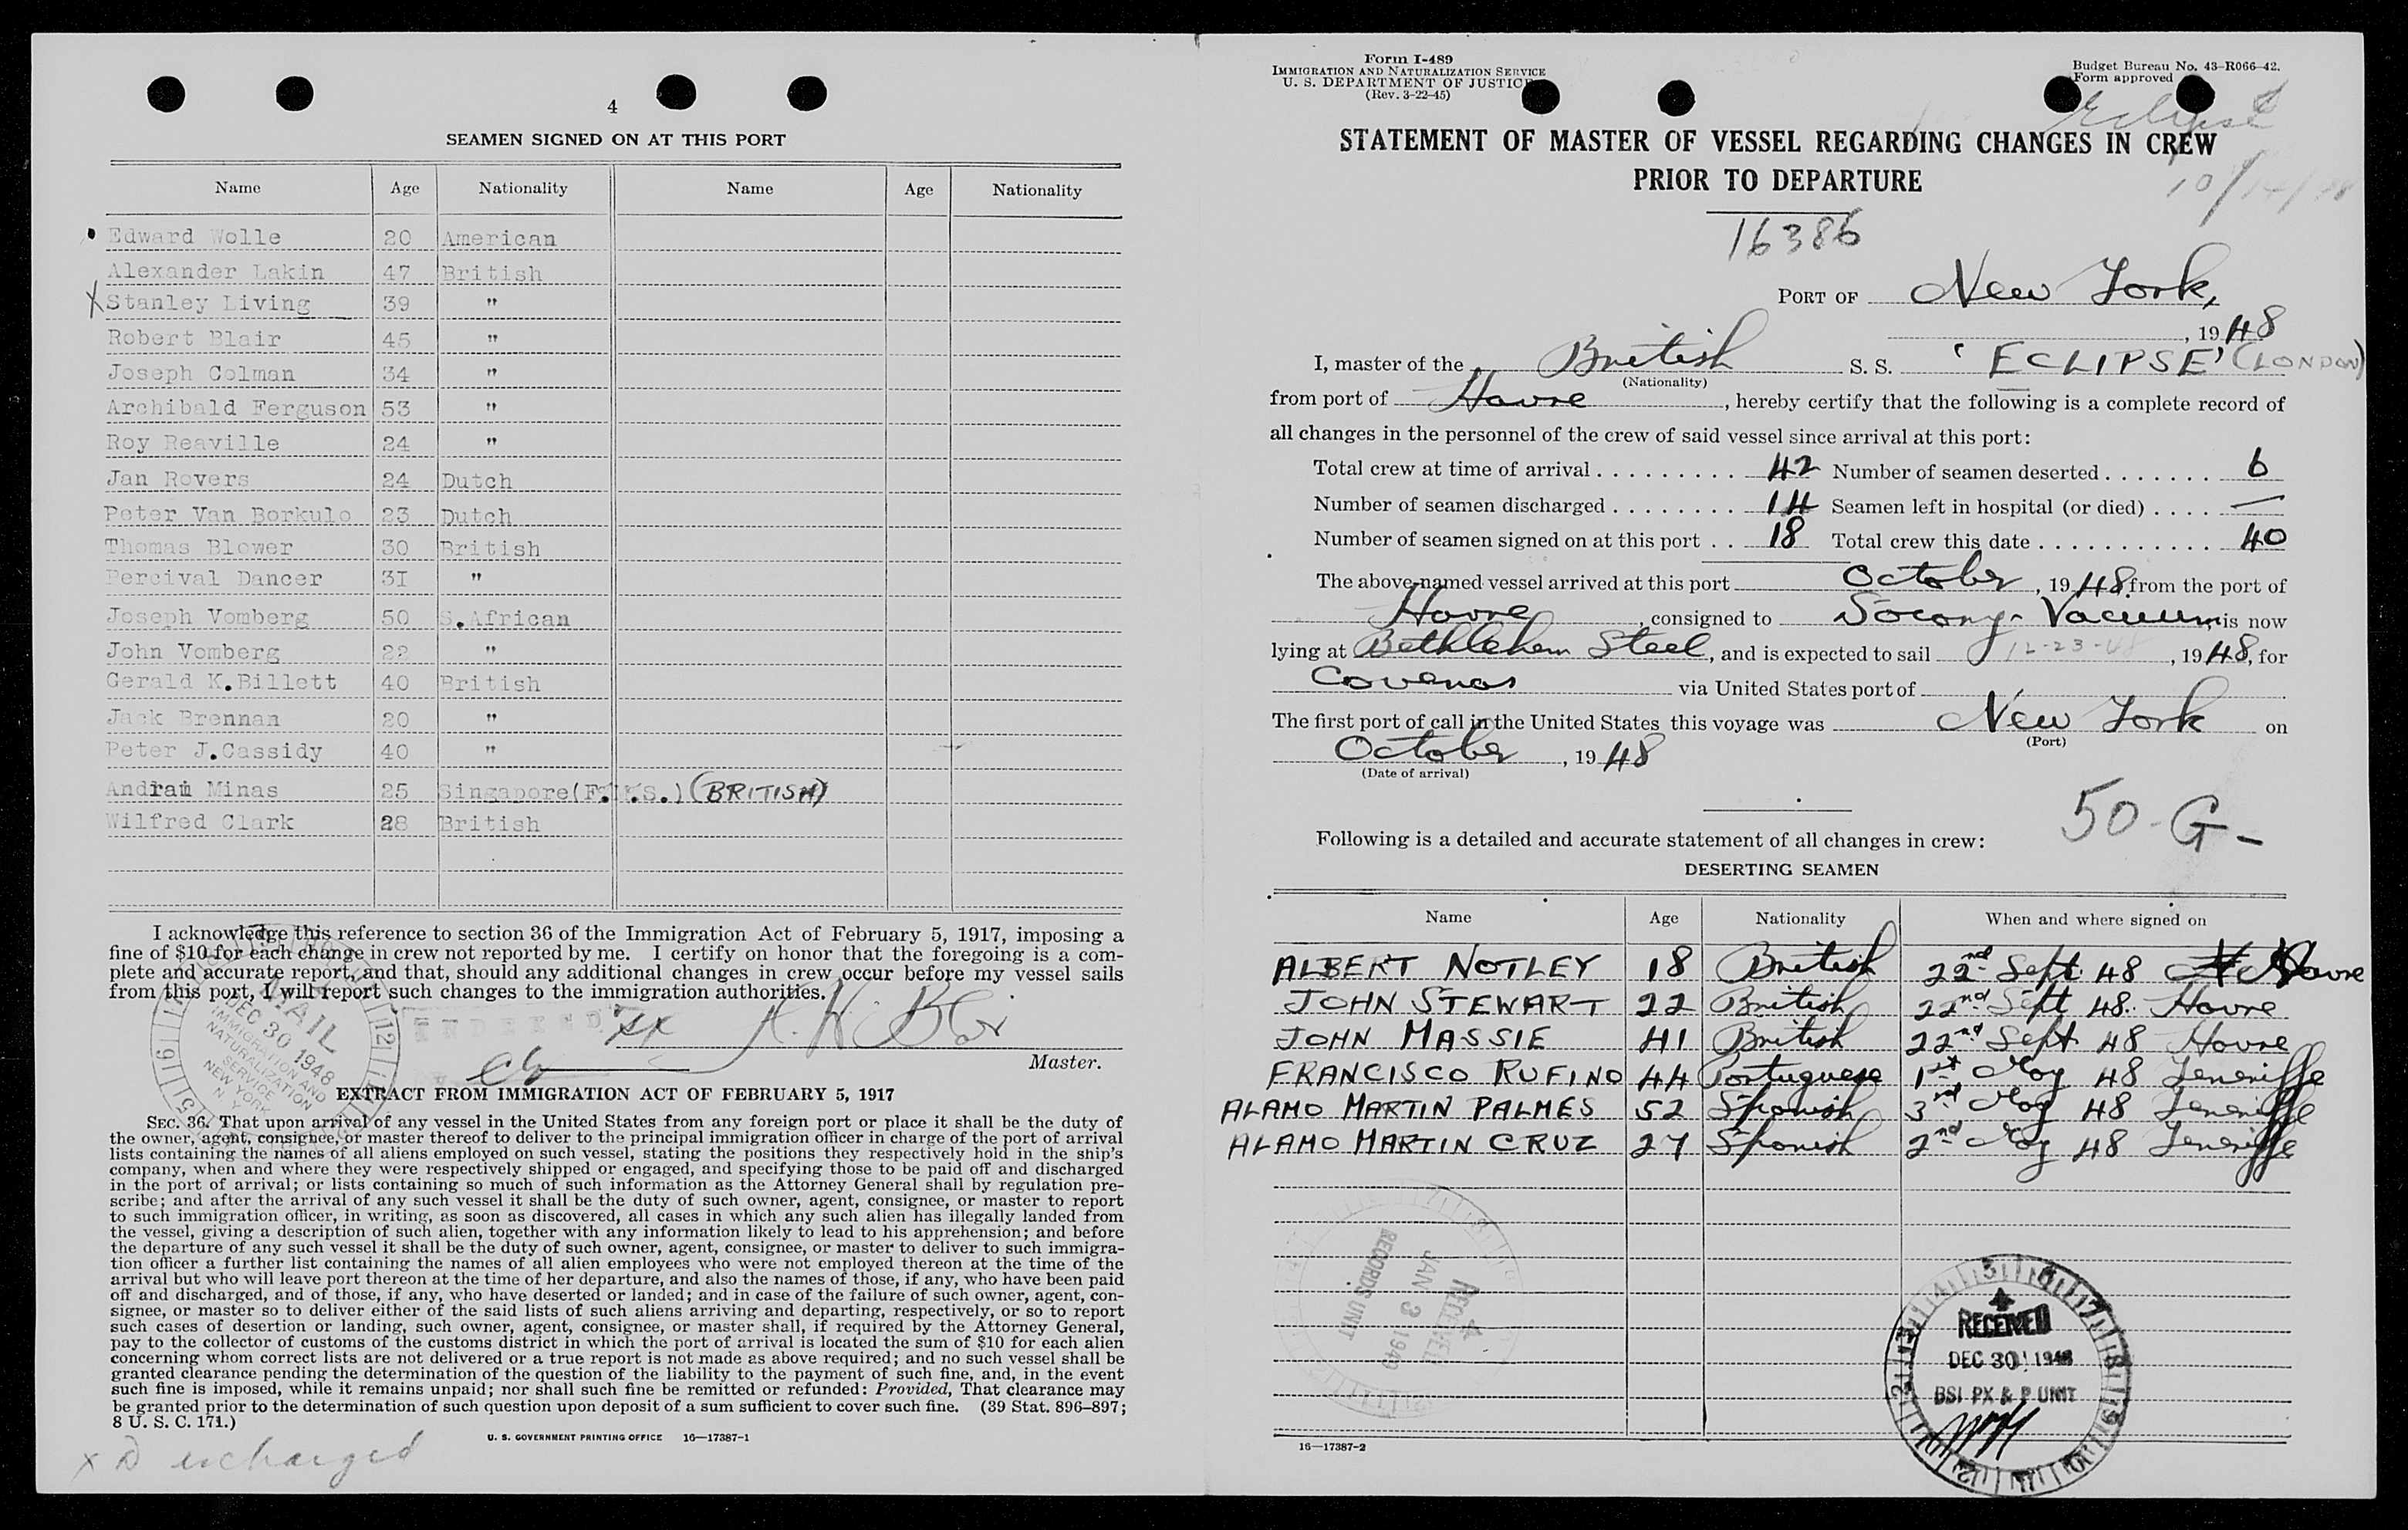 4
SEAMEN SIGNED ON AT THIS PORT
Name Age Nationality Name Age Nationality
Edward Wolle 20 American
Alexander Lakin 47 British
X Stanley Living 39 "
Robert Blair 45 "
Joseph Colman 34 "
Archibald Ferguson 53 "
Roy Reaville 24 "
Jan Rovers 24 Dutch
Peter Van Borkulo 23 Dutch
Thomas Blower 30 British
Percival Dancer 31 "
Joseph Vomberg 50 S.African
John Vomberg 22 "
Gerald K.Billett 40 British
Jack Brennan 20 "
Peter J.Cassidy 40 "
Andram Minas 25 Singapore (BRITISH)
Wilfred Clark 28 British
I acknowledge this reference to section 36 of the Immigration Act of February 5, 1917, imposing a
fine of $10 for each change in crew not reported by me. I certify on honor that the foregoing is a com-
plete and accurate report, and that, should any additional changes in crew occur before my vessel sails
from this port, I will report such changes to the immigration authorities.
Master.
MAIL
DEC 30 1948
IMMIGRATION AND
NATURALIZATION
SERVICE
NEW YORK
N. Y.
EXTRACT FROM IMMIGRATION ACT OF FEBRUARY 5, 1917
SEC. 36. That upon arrival of any vessel in the United States from any foreign port or place it shall be the duty of
the owner, agent, consignee, or master thereof to deliver to the principal immigration officer in charge of the port of arrival
lists containing the names of all aliens employed on such vessel, stating the positions they respectively hold in the ship's
company, when and where they were respectively shipped or engaged, and specifying those to be paid off and discharged
in the port of arrival; or lists containing so much of such information as the Attorney General shall by regulation pre-
scribe; and after the arrival of any such vessel it shall be the duty of such owner, agent, consignee, or master to report
to such immigration officer, in writing, as soon as discovered, all cases in which any such alien has illegally landed from
the vessel, giving a description of such alien, together with any information likely to lead to his apprehension; and before
the departure of any such vessel it shall be the duty of such owner, agent, consignee, or master to deliver to such immigra-
tion officer a further list containing the names of all alien employees who were not employed thereon at the time of the
arrival but who will leave port thereon at the time of her departure, and also the names of those, if any, who have been paid
off and discharged, and of those, if any, who have deserted or landed; and in case of the failure of such owner, agent, con-
signee, or master so to deliver either of the said lists of such aliens arriving and departing, respectively, or so to report
such cases of desertion or landing, such owner, agent, consignee, or master shall, if required by the Attorney General,
pay to the collector of customs of the customs district in which the port of arrival is located the sum of $10 for each alien
concerning whom correct lists are not delivered or a true report is not made as above required; and no such vessel shall be
granted clearance pending the determination of the question of the liability to the payment of such fine, and, in the event
such fine is imposed, while it remains unpaid; nor shall such fine be remitted or refunded: Provided, That clearance may
be granted prior to the determination of such question upon deposit of a sum sufficient to cover such fine. (39 Stat. 896–897;
8 U. S. C. 171.)
U. S. GOVERNMENT PRINTING OFFICE 16—17387-1
Form I-489
IMMIGRATION AND NATURALIZATION SERVICE
U. S. DEPARTMENT OF JUSTICE
(Rev. 3-22-45)
Budget Bureau No. 43-R066-42.
Form approved
Eclipse
STATEMENT OF MASTER OF VESSEL REGARDING CHANGES IN CREW
PRIOR TO DEPARTURE
16386
PORT OF New York,
, 1948
I, master of the British S. S. 'ECLIPSE' (LONDON)
(Nationality)
from port of Havre, hereby certify that the following is a complete record of
all changes in the personnel of the crew of said vessel since arrival at this port:
Total crew at time of arrival . . . . . . . . . . 42 Number of seamen deserted . . . . . . . 6
Number of seamen discharged . . . . . . . . . 14 Seamen left in hospital (or died) . . . . —
Number of seamen signed on at this port . . 18 Total crew this date . . . . . . . . . . . . 40
The above-named vessel arrived at this port October, 1948, from the port of
Havre, consigned to Socony-Vacuum, is now
lying at Bethlehem Steel, and is expected to sail 12-23-48, 1948, for
Covenas via United States port of
The first port of call in the United States this voyage was New York on
(Port)
October, 1948
(Date of arrival)
50-G-
Following is a detailed and accurate statement of all changes in crew:
DESERTING SEAMEN
Name Age Nationality When and where signed on
ALBERT NOTLEY 18 British 22nd Sept. 48 Havre
JOHN STEWART 22 British 22nd Sept 48. Havre
JOHN MASSIE 41 British 22nd Sept. 48 Havre
FRANCISCO RUFINO 44 Portuguese 1st May 48 Teneriffe
ALAMO MARTIN PALMES 52 Spanish 3rd May 48 Teneriffe
ALAMO MARTIN CRUZ 27 Spanish 2nd May 48 Teneriffe
RECEIVED
JAN 3 1949
RECORDS UNIT
RECEIVED
DEC 30 1948
BSI PX & P UNIT
16—17387-2